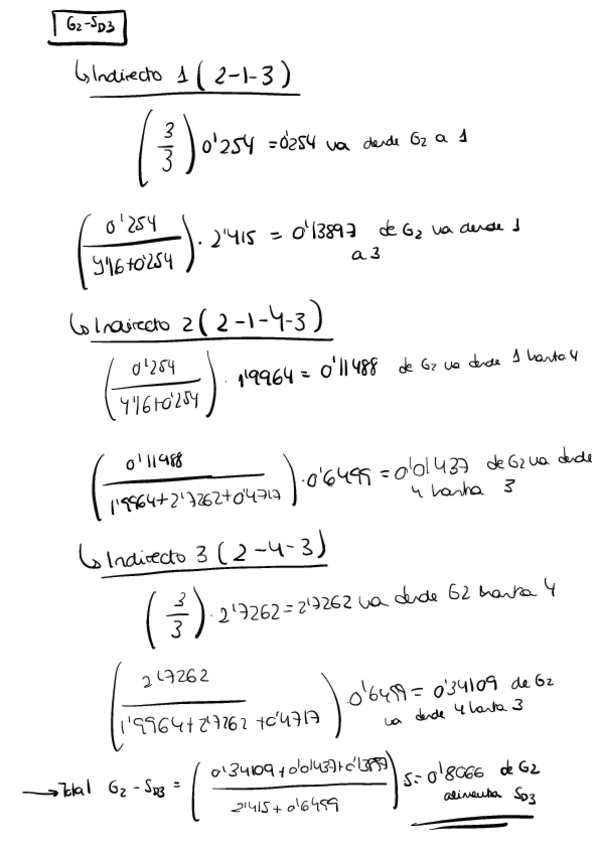 G2-SD3
↳Indirecto 1 (2-1-3)
(3/3) 0'254 = 0'254 va desde G2 a 1
(0'254 / 4'16+0'254) · 2'415 = 0'13897 de G2 va desde 1
a 3
↳Indirecto 2 (2-1-4-3)
(0'254 / 4'16+0'254) · 1'9964 = 0'11488 de G2 va desde 1 hasta 4
(0'11488 / 1'9964+2'7262+0'4717) · 0'6499 = 0'01437 de G2 va desde
4 hasta 3
↳Indirecto 3 (2-4-3)
(3/3) · 2'7262 = 2'7262 va desde G2 hasta 4
(2'7262 / 1'9964+2'7262+0'4717) 0'6499 = 0'34109 de G2
va desde 4 hasta 3
→Total G2-SD3 = (0'34109+0'01437+0'13897 / 2'415+0'6499) 5 = 0'8066 de G2
alimenta SD3